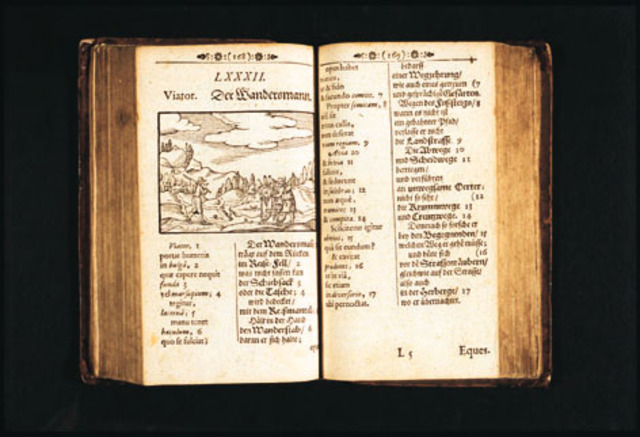 (168)
LXXXII.
Viator. Der Wandersmann.
Viator, 1
portat humeris
in bulgâ, 2
quæ capere nequit
funda 3
vel marsupium; 4
tegitur,
lacernâ; 5
manu tenet
baculum, 6
quo se fulciat;
Der Wandersmañ
trägt auf dem Rücken
im Reise-Fell/ 2
was nicht fassen kan
der Schubsack 3
oder die Tasche; 4
wird bedecket/
mit dem Reißmantel;
Hält in der Hand
den Wanderstab/ 6
daran er sich halte;
(169)
opus habet
& fido
& facundo comite. 7
Propter semitam, 8
non deserat
viam regiam. 9
Avia 20
& bivia 11
fallunt,
& seducunt
in salebras; 12
non æquè,
tramites 13
& compita. 14
Sciscitetur igitur
obvios, 15
quà sit eundum?
& caveat
prædones, 16
ut in viâ,
sic etiam
in diversorio, 17
ubi pernoctat.
bedarff
einer Wegzehrung/
wie auch eines getreuen (7
und gesprächigen Gefärten.
Wegen des Fußsteigs/ 8
wann es nicht ist
ein gebahnter Pfad/
verlasse er nicht
die Landstrasse. 9
Die Abwege 10
und Scheidwege 11
betriegen/
und verführen
an unwegsame Oerter;
nicht so sehr/ (12
die Krummwege 13
und Creutzwege. 14
Demnach so forsche er
bey den Begegnenden/ 15
welchen Weg er gehē müsse;
und hüte sich (16
vor dē Strassenräubern/
gleichwie auf der Strasse/
also auch
in der Herberge/ 17
wo er übernachtet.
L 5 Eques.